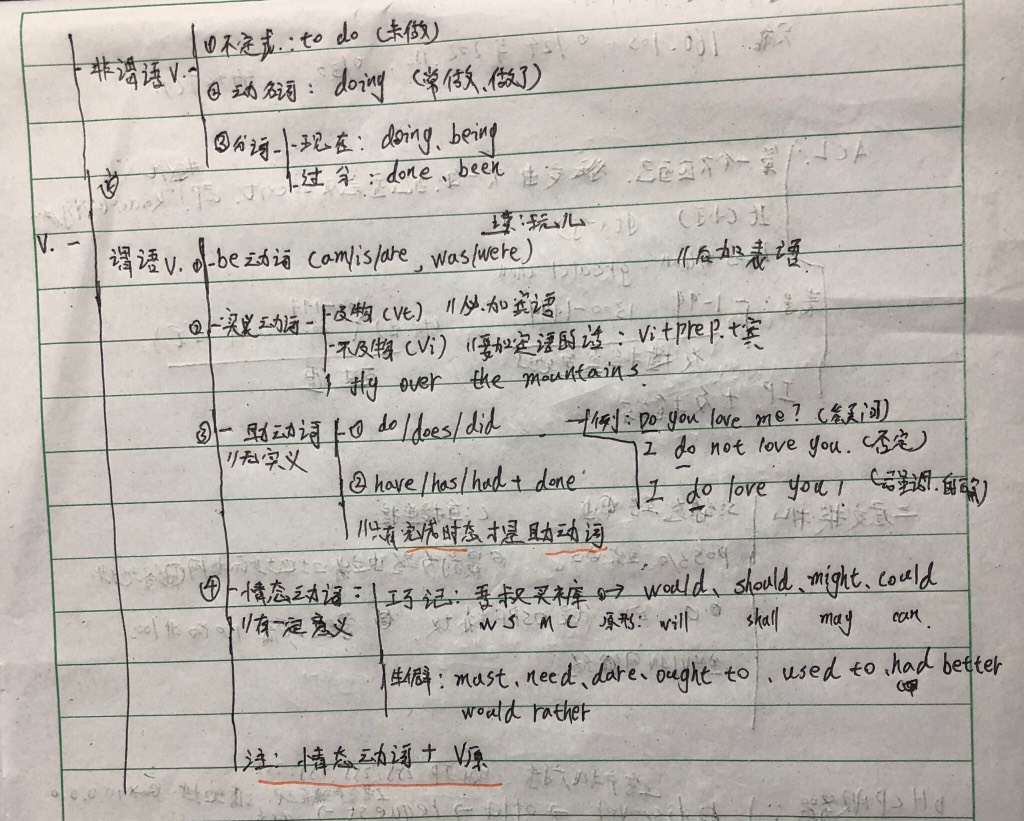 ①不定式.: to do (未做)
非谓语 V. -
② 动名词: doing (常做、做了)
③分词 - 现在: doing、being
过去: done、been
V. -
读:玩儿
谓语 V. ① - be 动词 (am/is/are, was/were) //后加表语
② - 实义动词 - -及物 (Vt) //必加宾语
-不及物 (Vi) //要加宾语的话: Vi+prep.+宾
fly over the mountains.
③ - 助动词 - ① do/does/did - 例: Do you love me? (疑问)
//无实义 I do not love you. (否定)
② have/has/had + done I do love you! (强调)
//只有完成时态才是助动词
④ - 情态动词: 巧记: 吾叔买裤 would、should、might、could
//有一定意义 W S M C 原形: will shall may can.
生僻: must、need、dare、ought to、used to、had better
would rather
注: 情态动词 + V原